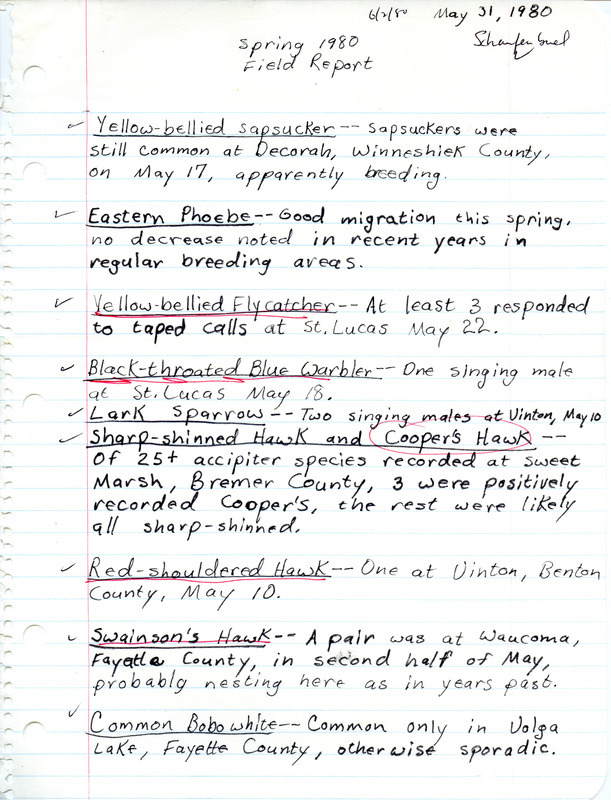 6/2/80 May 31, 1980
Spring 1980
Field Report
Yellow-bellied sapsucker -- Sapsuckers were
still common at Decorah, Winneshiek County,
on May 17, apparently breeding.
Eastern Phoebe -- Good migration this spring,
no decrease noted in recent years in
regular breeding areas.
Yellow-bellied Flycatcher -- At least 3 responded
to taped calls at St. Lucas May 22.
Black-throated Blue Warbler -- One singing male
at St. Lucas May 18.
Lark Sparrow -- Two singing males at Vinton, May 10
Sharp-shinned Hawk and Cooper's Hawk --
Of 25+ accipiter species recorded at Sweet
Marsh, Bremer County, 3 were positively
recorded Cooper's, the rest were likely
all sharp-shinned.
Red-shouldered Hawk -- One at Vinton, Benton
County, May 10.
Swainson's Hawk -- A pair was at Waucoma,
Fayette County, in second half of May,
probably nesting here as in years past.
Common Bobowhite -- Common only in Volga
Lake, Fayette County, otherwise sporadic.